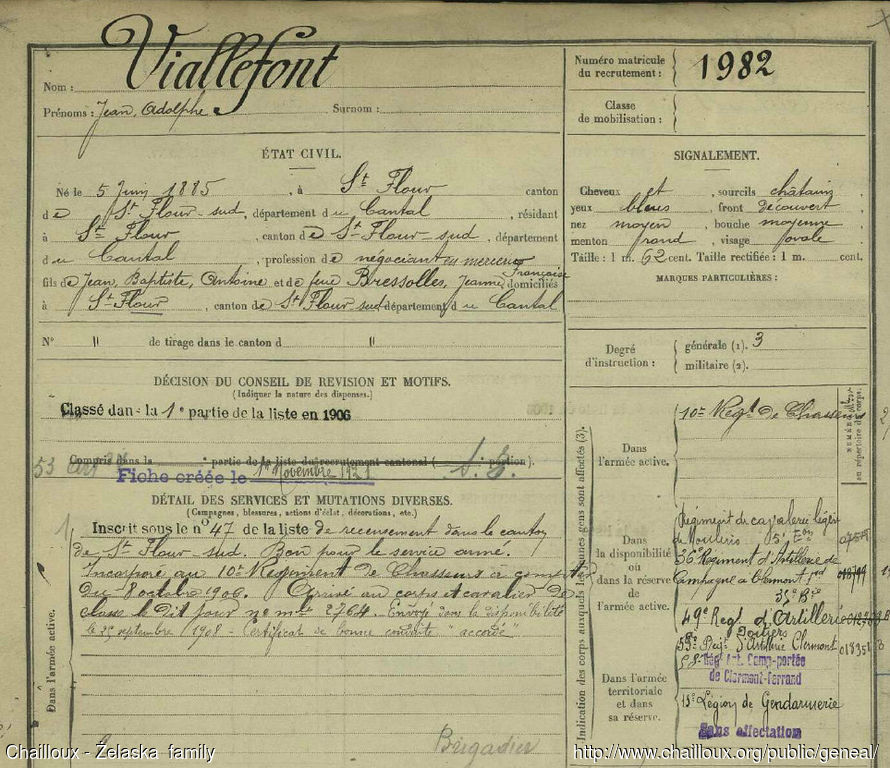 Nom : Viallefont
Prénoms : Jean, Adolphe Surnom :
Numéro matricule du recrutement : 1982
Classe de mobilisation :
ÉTAT CIVIL.
Né le 5 Juin 1885, à St Flour canton
de St Flour-sud, département du Cantal, résidant
à St Flour, canton de St Flour-sud, département
du Cantal, profession de négociant en mercerie
fils de Jean, Baptiste, Antoine et de feue Bressolles, Jeanne, Françoise domiciliés
à St Flour, canton de St Flour sud département du Cantal
N° " de tirage dans le canton d "
SIGNALEMENT.
Cheveux et, sourcils châtains
yeux bleus, front découvert
nez moyen, bouche moyenne
menton rond, visage ovale
Taille : 1 m. 62 cent. Taille rectifiée : 1 m. cent.
MARQUES PARTICULIÈRES :
Degré d'instruction : générale (1). 3
militaire (2).
DÉCISION DU CONSEIL DE REVISION ET MOTIFS.
(Indiquer la nature des dispenses.)
Classé dans la 1e partie de la liste en 1906
Compris dans la e partie de la liste du recrutement cantonal ( portion).
53
Fiche créée le 1er Novembre 1921
DÉTAIL DES SERVICES ET MUTATIONS DIVERSES.
(Campagnes, blessures, actions d'éclat, décorations, etc.)
Inscrit sous le n° 47 de la liste de recensement dans le canton
de St Flour sud. Bon pour le service armé.
Incorporé au 10e Régiment de Chasseurs à compter
du 8 octobre 1906. Arrivé au corps et cavalier de 2e
classe le dit jour no mle 2764. Envoyé dans la disponibilité
le 25 septembre 1908 - Certificat de bonne conduite "accordé"
Brigadier
Dans l'armée active.
Indication des corps auxquels les jeunes gens sont affectés (3).
NUMÉROS au répertoire du corps.
Dans l'armée active.
10e Régt de Chasseurs
Dans la disponibilité ou dans la réserve de l'armée active.
Régiment de cavalerie légère
de Moulins 5e Eon
36e Régiment d'Artillerie de
Campagne à Clermont Fd
49e Regt d'Artillerie
Poitiers
53e Régt d'Artillerie Clermont 01835
Régt Art. Camp-portée
de Clermont-Ferrand
Dans l'armée territoriale et dans sa réserve.
13e Légion de Gendarmerie
Sans affectation
Chailloux - Żelaska family
http://www.chailloux.org/public/geneal/